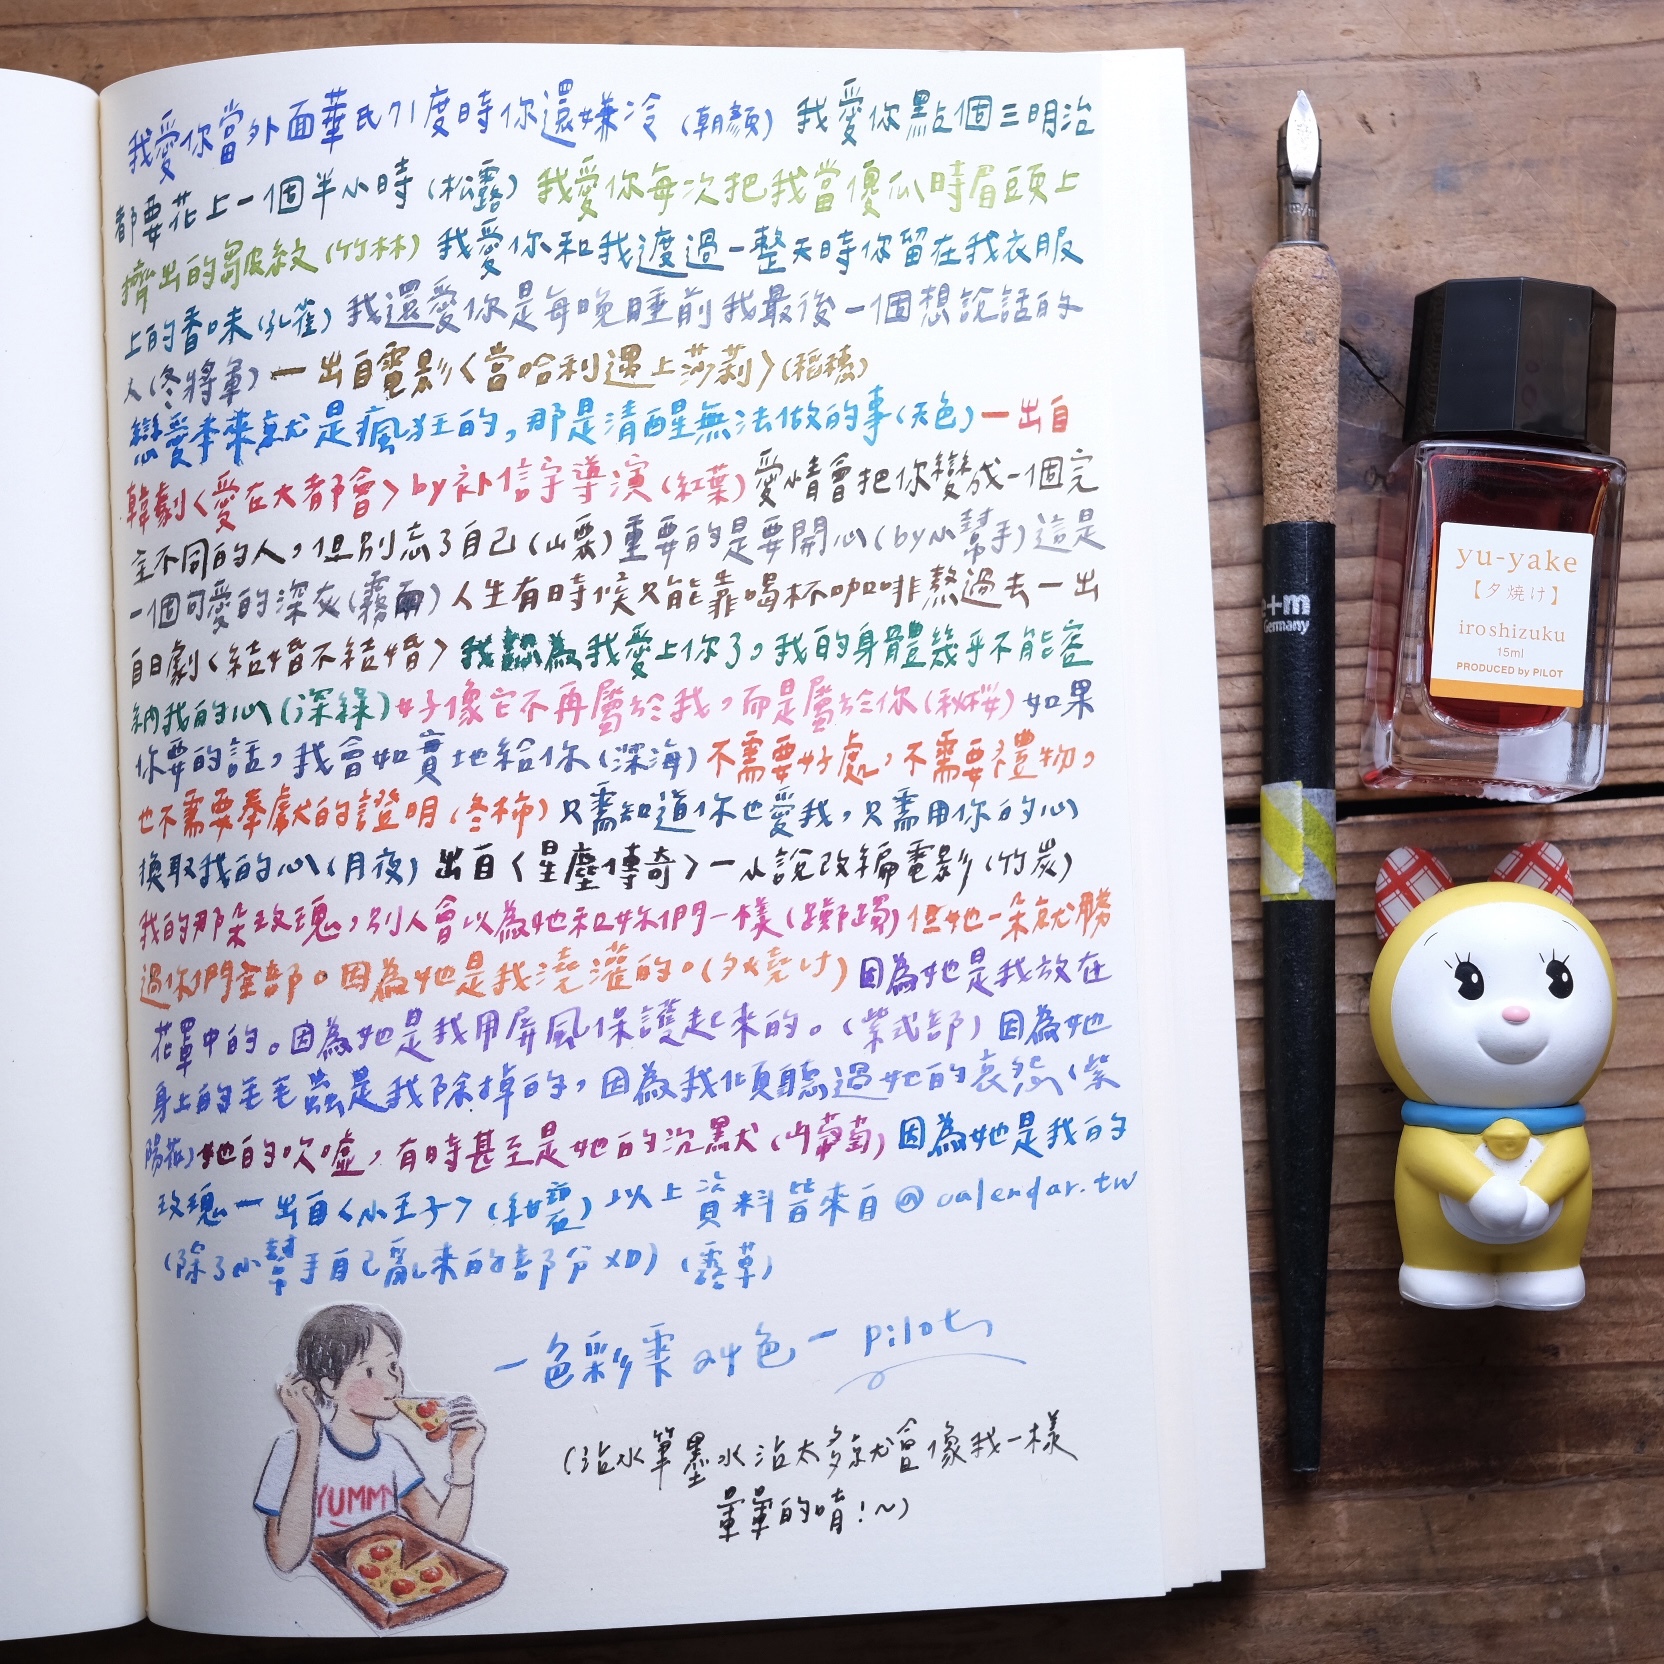 我愛你當外面華氏71度時你還嫌冷(朝顏) 我愛你點個三明治
都要花上一個半小時(松露) 我愛你每次把我當傻瓜時眉頭上
擠出的皺紋(竹林) 我愛你和我渡過一整天時你留在我衣服
上的香味(孔雀) 我還愛你是每晚睡前我最後一個想說話的
人(冬將軍) 一出自電影〈當哈利遇上莎莉〉(稻穗)
戀愛本來就是瘋狂的,那是清醒無法做的事(天色)一出自
韓劇〈愛在大都會〉by 朴信宇導演(紅葉)愛情會把你變成一個完
全不同的人,但別忘了自己(山栗)重要的是要開心(by小幫手)這是
一個可愛的深灰(霧雨)人生有時候只能靠喝杯咖啡熬過去一出
自日劇〈結婚不結婚〉我認為我愛上你了。我的身體幾乎不能容
納我的心(深綠)好像它不再屬於我,而是屬於你(秋桜)如果
你要的話,我會如實地給你(深海)不需要好處,不需要禮物,
也不需要奉獻的證明(冬柿)只需知道你也愛我,只需用你的心
換取我的心(月夜)出自〈星塵傳奇〉一小說改編電影(竹炭)
我的那朵玫瑰,別人會以為她和妳們一樣(躑躅)但她一朵就勝
過你們全部。因為她是我澆灌的。(夕燒け)因為她是我放在
花罩中的。因為她是我用屏風保護起來的。(紫式部)因為她
身上的毛毛蟲是我除掉的,因為我傾聽過她的哀怨(紫
陽花)她的吹噓,有時甚至是她的沉默(山葡萄)因為她是我的
玫瑰一出自〈小王子〉(紺碧)以上資料皆來自@calendar.tw
(除了小幫手自己亂来的部分XD)(露草)
一色彩雫24色一pilot
(沾水筆墨水沾太多就會像我一樣
暈暈的唷!~)
YUMMY
e+m
Germany
yu-yake
【夕焼け】
iroshizuku
15ml
PRODUCED by PILOT